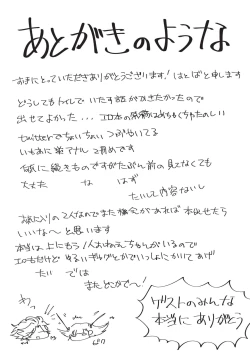 あとがきのような
お手にとっていただきありがとうございます！はとばと申します
どうしてもトイレでいたす話がかきたかったので
出せてよかった…コロ本の原稿はめちゃくちゃたのしい
twitterでちょいちょいつぶやいてる
いちおう
一応続きものですがたぶん前の見てなくても
大丈夫　な　はず
たいして内容ないし
お気に入りの2人なのでまた機会があれば本出せたら
いいな〜と思います
本当は上にもう1人おねえちゃんがいるので
エロもだけど ゆるいギャグとかでいっしょにかいてあげ
たい　では
またどこかで〜！
ゲストのみんな
本当にありがとう